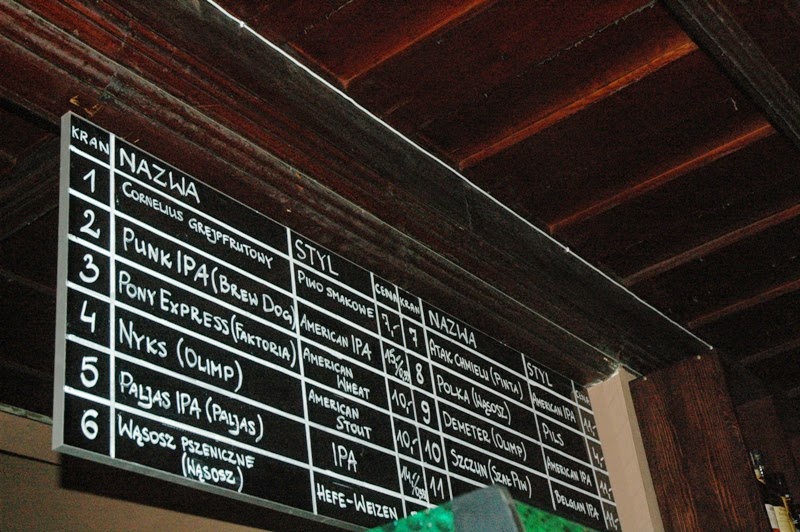 KRAN NAZWA STYL CENA KRAN NAZWA STYL CENA
1 CORNELIUS GREJPFRUTOWY PIWO SMAKOWE 7,- 7 ATAK CHMIELU (PINTA) AMERICAN IPA 11,-
2 PUNK IPA (BREW DOG) AMERICAN IPA 8 POLKA (WĄSOSZ) PILS
3 PONY EXPRESS (FAKTORIA) AMERICAN WHEAT 10,- 9 DEMETER (OLIMP) AMERICAN IPA 11,-
4 NYKS (OLIMP) AMERICAN STOUT 10,- 10 SZCZUN (SZAŁ PIW) BELGIAN IPA 11,-
5 PALJAS IPA (PALJAS) IPA 11
6 WĄSOSZ PSZENICZNE (WĄSOSZ) HEFE-WEIZEN